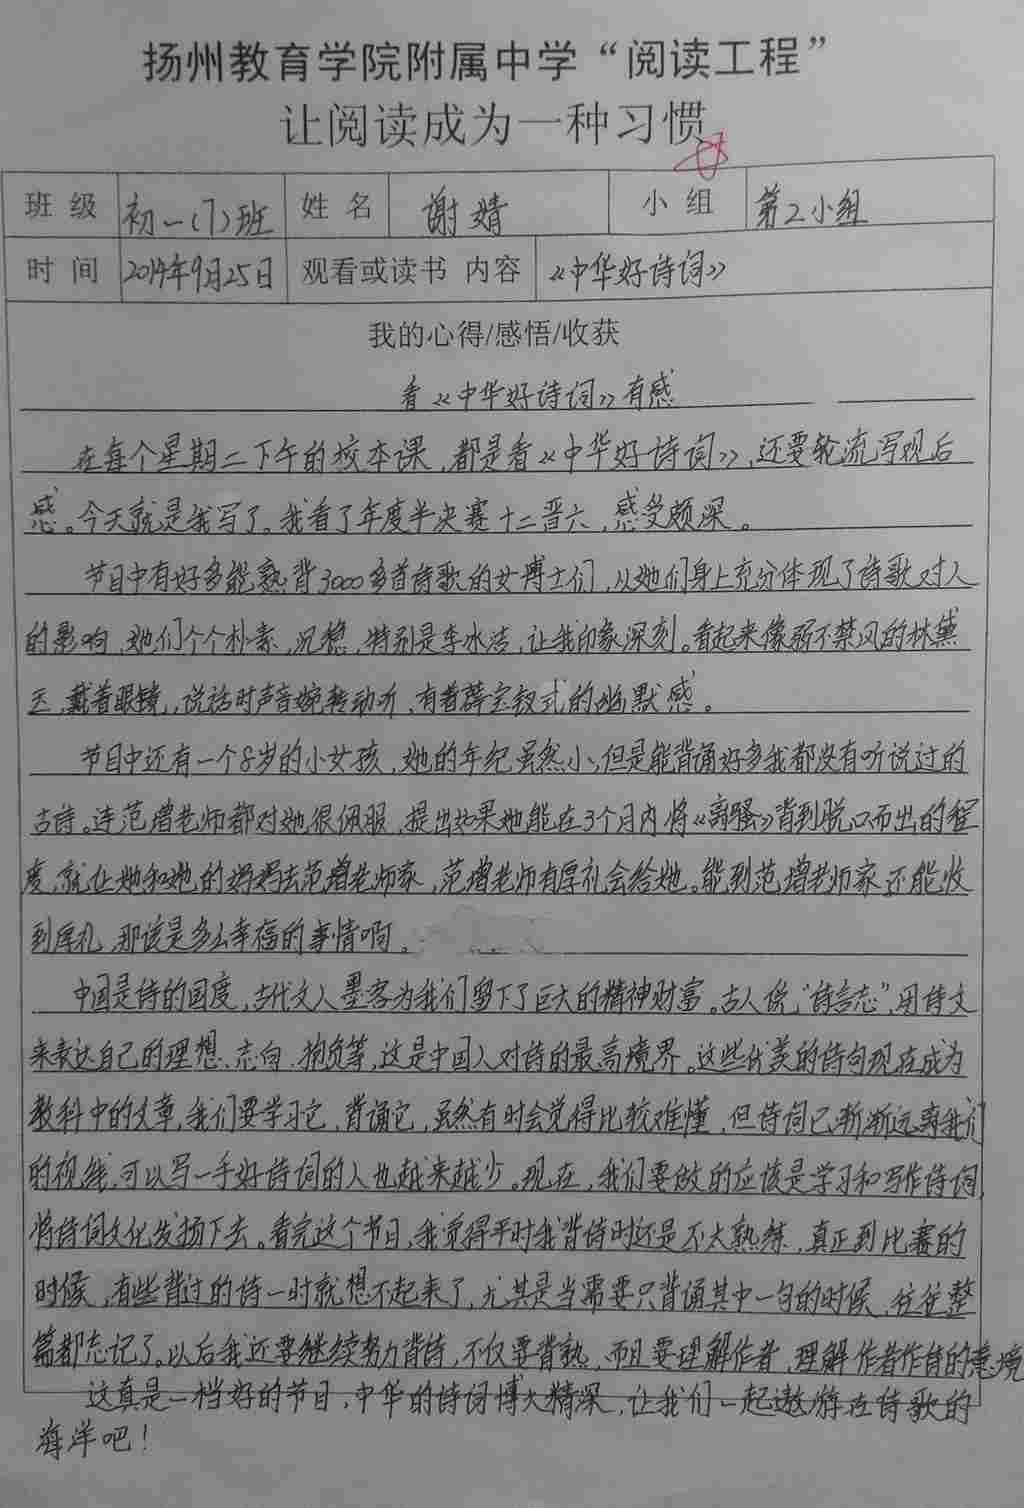 扬州教育学院附属中学“阅读工程”
让阅读成为一种习惯
班 级 初一(7)班 姓 名 谢婧 小 组 第2小组
时 间 2014年9月25日 观看或读书 内容 《中华好诗词》
我的心得/感悟/收获
看《中华好诗词》有感
在每个星期二下午的校本课,都是看《中华好诗词》,还要轮流写观后
感。今天就是我写了。我看了年度半决赛十二晋六,感受颇深。
节目中有好多能熟背3000多首诗歌的女博士们,从她们身上充分体现了诗歌对人
的影响,她们个个朴素,沉稳,特别是李冰洁,让我印象深刻。看起来像弱不禁风的林黛
玉,戴着眼镜,说话时声音婉转动听,有着薛宝钗式的幽默感。
节目中还有一个8岁的小女孩,她的年纪虽然小,但是能背诵好多我都没有听说过的
古诗。连范增老师都对她很佩服,提出如果她能在3个月内将《离骚》背到脱口而出的程
度,就让她和她的妈妈去范增老师家,范增老师有厚礼会给她。能到范增老师家还能收
到厚礼,那该是多么幸福的事情啊。
中国是诗的国度,古代文人墨客为我们留下了巨大的精神财富。古人说,“诗言志”,用诗文
来表达自己的理想、志向、抱负等,这是中国人对诗的最高境界。这些优美的诗句现在成为
教科中的文章,我们要学习它,背诵它,虽然有时会觉得比较难懂,但诗词已渐渐远离我们
的视线,可以写一手好诗词的人也越来越少。现在,我们要做的应该是学习和写作诗词,
将诗词文化发扬下去。看完这个节目,我觉得平时我背诗时还是不太熟练,真正到比赛的
时候,有些背过的诗一时就想不起来了,尤其是当需要只背诵其中一句的时候,往往整
篇都忘记了。以后我还要继续努力背诗,不仅要背熟,而且要理解作者,理解作者作诗的意境
这真是一档好的节目,中华的诗词博大精深,让我们一起遨游在诗歌的
海洋吧!